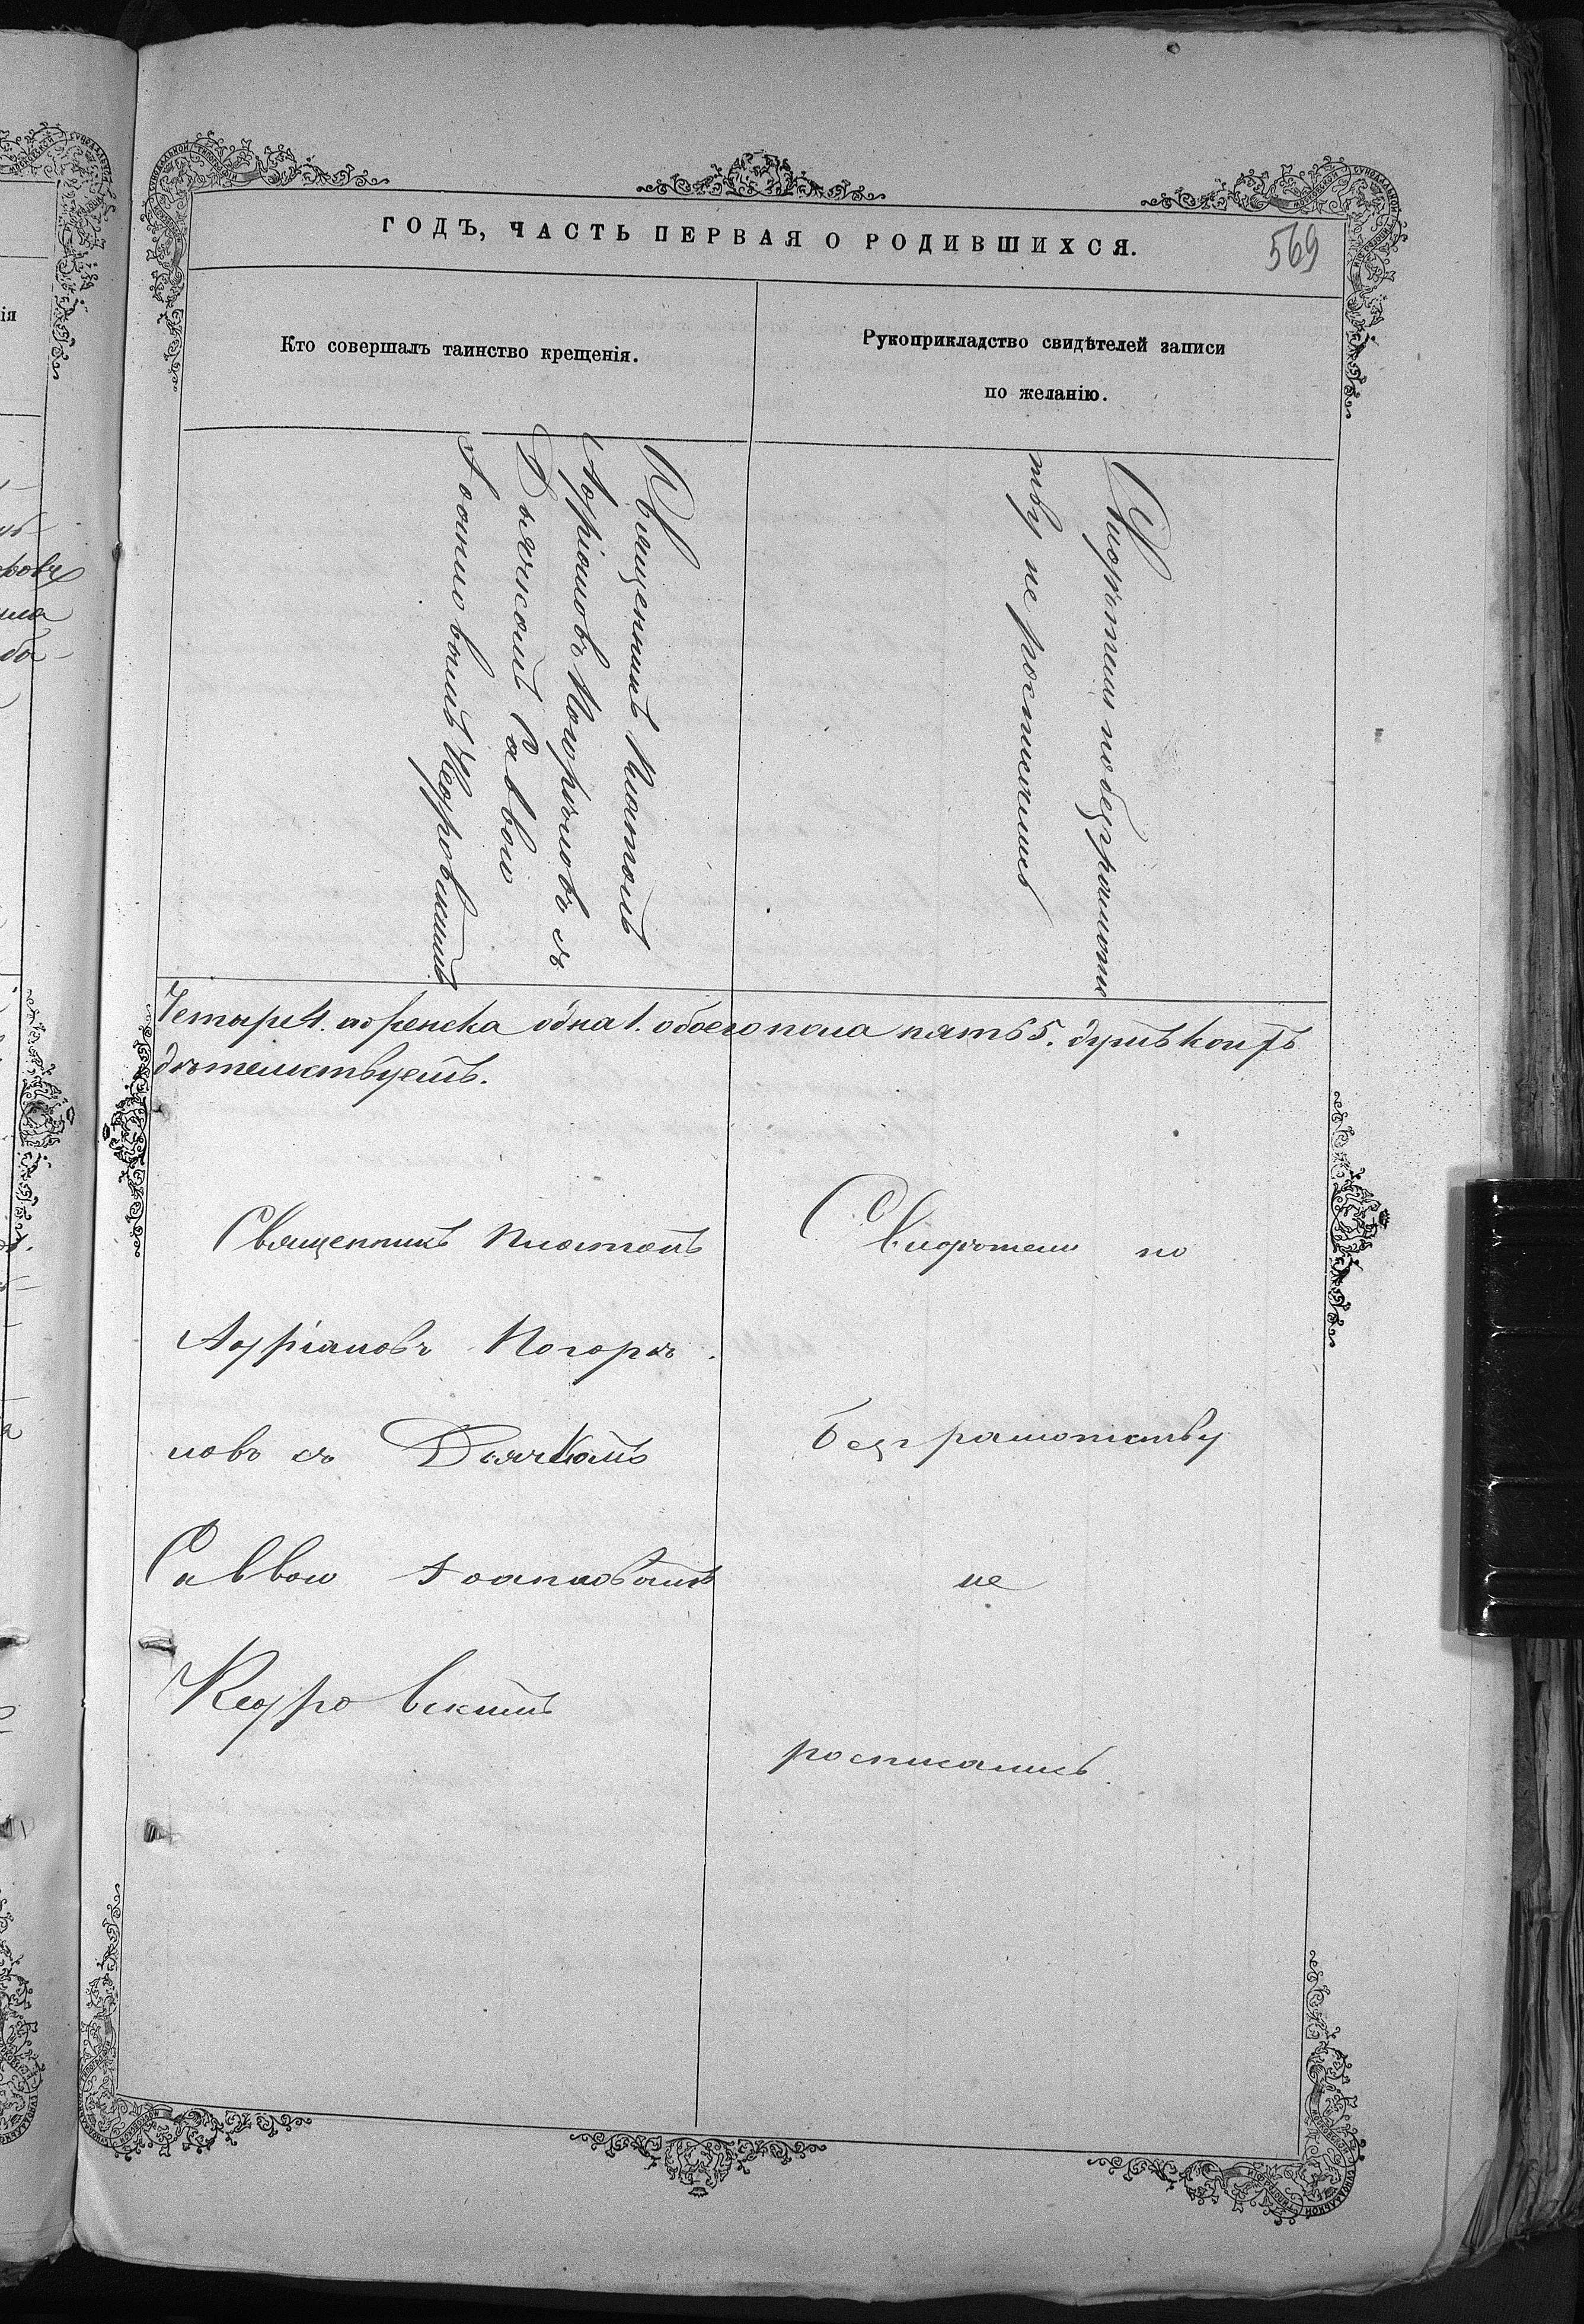 ГОДЪ, ЧАСТЬ ПЕРВАЯ О РОДИВШИХСЯ.
569
Кто совершалъ таинство крещенія.
Рукоприкладство свидѣтелей записи
по желанію.
Священникъ Платонъ
Адріановъ Погорѣловъ съ
Дьячкомъ Саввою
Іоанновымъ Кедровскимъ
Свидѣтели по безграмотс
тву не росписались
Четыре 4. а женска одна 1. обоего пола пять 5. душъ
дѣтельствуетъ.
Священникъ Платонъ
Адріановъ Погорѣ
ловъ съ Дьячкомъ
Саввою Іоанновымъ
Кедровскимъ
Свидѣтели по
безграмотству
не
росписались.